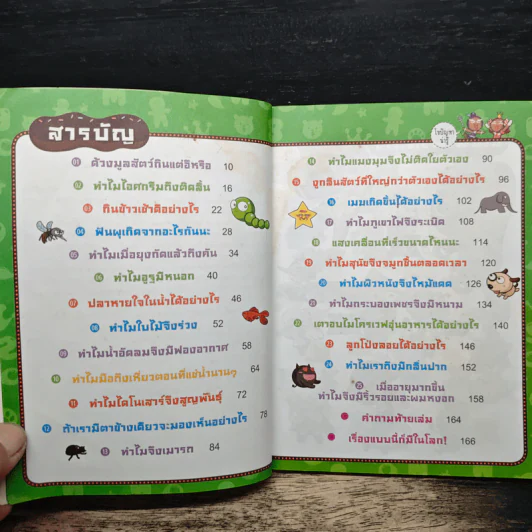 สารบัญ
01 ด้วงมูลสัตว์กินแต่อึหรือ 10
02 ทำไมไอศกรีมถึงติดลิ้น 16
03 กินข้าวเช้าดีอย่างไร 22
04 ฟันผุเกิดจากอะไรกันนะ 28
05 ทำไมเมื่อยุงกัดแล้วถึงคัน 34
06 ทำไมอูฐมีหนอก 40
07 ปลาหายใจในน้ำได้อย่างไร 46
08 ทำไมใบไม้จึงร่วง 52
09 ทำไมน้ำอัดลมจึงมีฟองอากาศ 58
10 ทำไมมือถึงเหี่ยวตอนที่แช่น้ำนานๆ 64
11 ทำไมไดโนเสาร์จึงสูญพันธุ์ 72
12 ถ้าเรามีตาข้างเดียวจะมองเห็นอย่างไร 78
13 ทำไมจึงเมารถ 84
14 ทำไมแมงมุมจึงไม่ติดใยตัวเอง 90
15 งูกลืนสัตว์ที่ใหญ่กว่าตัวเองได้อย่างไร 96
16 เมฆเกิดขึ้นได้อย่างไร 102
17 ทำไมภูเขาไฟจึงระเบิด 108
18 แสงเคลื่อนที่เร็วขนาดไหนนะ 114
19 ทำไมสุนัขจึงจมูกชื้นตลอดเวลา 120
20 ทำไมผิวหนังจึงไหม้แดด 126
21 ทำไมกระบองเพชรจึงมีหนาม 134
22 เตาอบไมโครเวฟอุ่นอาหารได้อย่างไร 140
23 ลูกโป่งลอยได้อย่างไร 146
24 ทำไมเราถึงมีกลิ่นปาก 152
25 เมื่ออายุมากขึ้น
ทำไมจึงมีริ้วรอยและผมหงอก 158
คำถามท้ายเล่ม 164
เรื่องแบบนี้ก็มีในโลก! 166